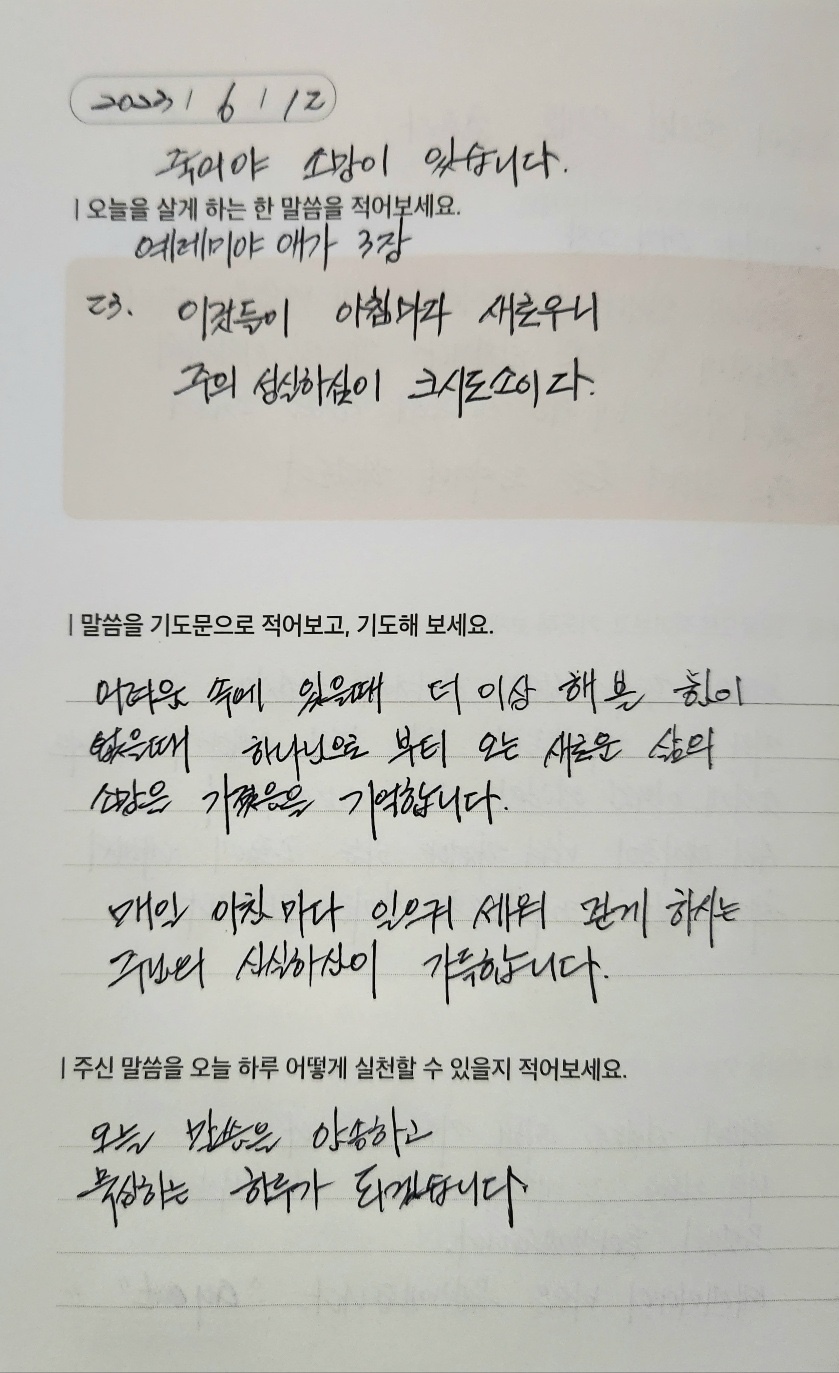 2023 / 6 / 12
죽어야 소망이 있습니다.
| 오늘을 살게 하는 한 말씀을 적어보세요.
예레미야 애가 3장
23. 이것들이 아침마다 새로우니
주의 성실하심이 크시도소이다.
| 말씀을 기도문으로 적어보고, 기도해 보세요.
어려움 속에 있을때 더 이상 해 볼 힘이
없을때 하나님으로 부터 오는 새로운 삶의
소망은 가졌음을 기억합니다.
매일 아침 마다 일으켜 세워 걷게 하시는
주님의 신실하심이 가득합니다.
| 주신 말씀을 오늘 하루 어떻게 실천할 수 있을지 적어보세요.
오늘 말씀을 암송하고
묵상하는 하루가 되겠습니다.